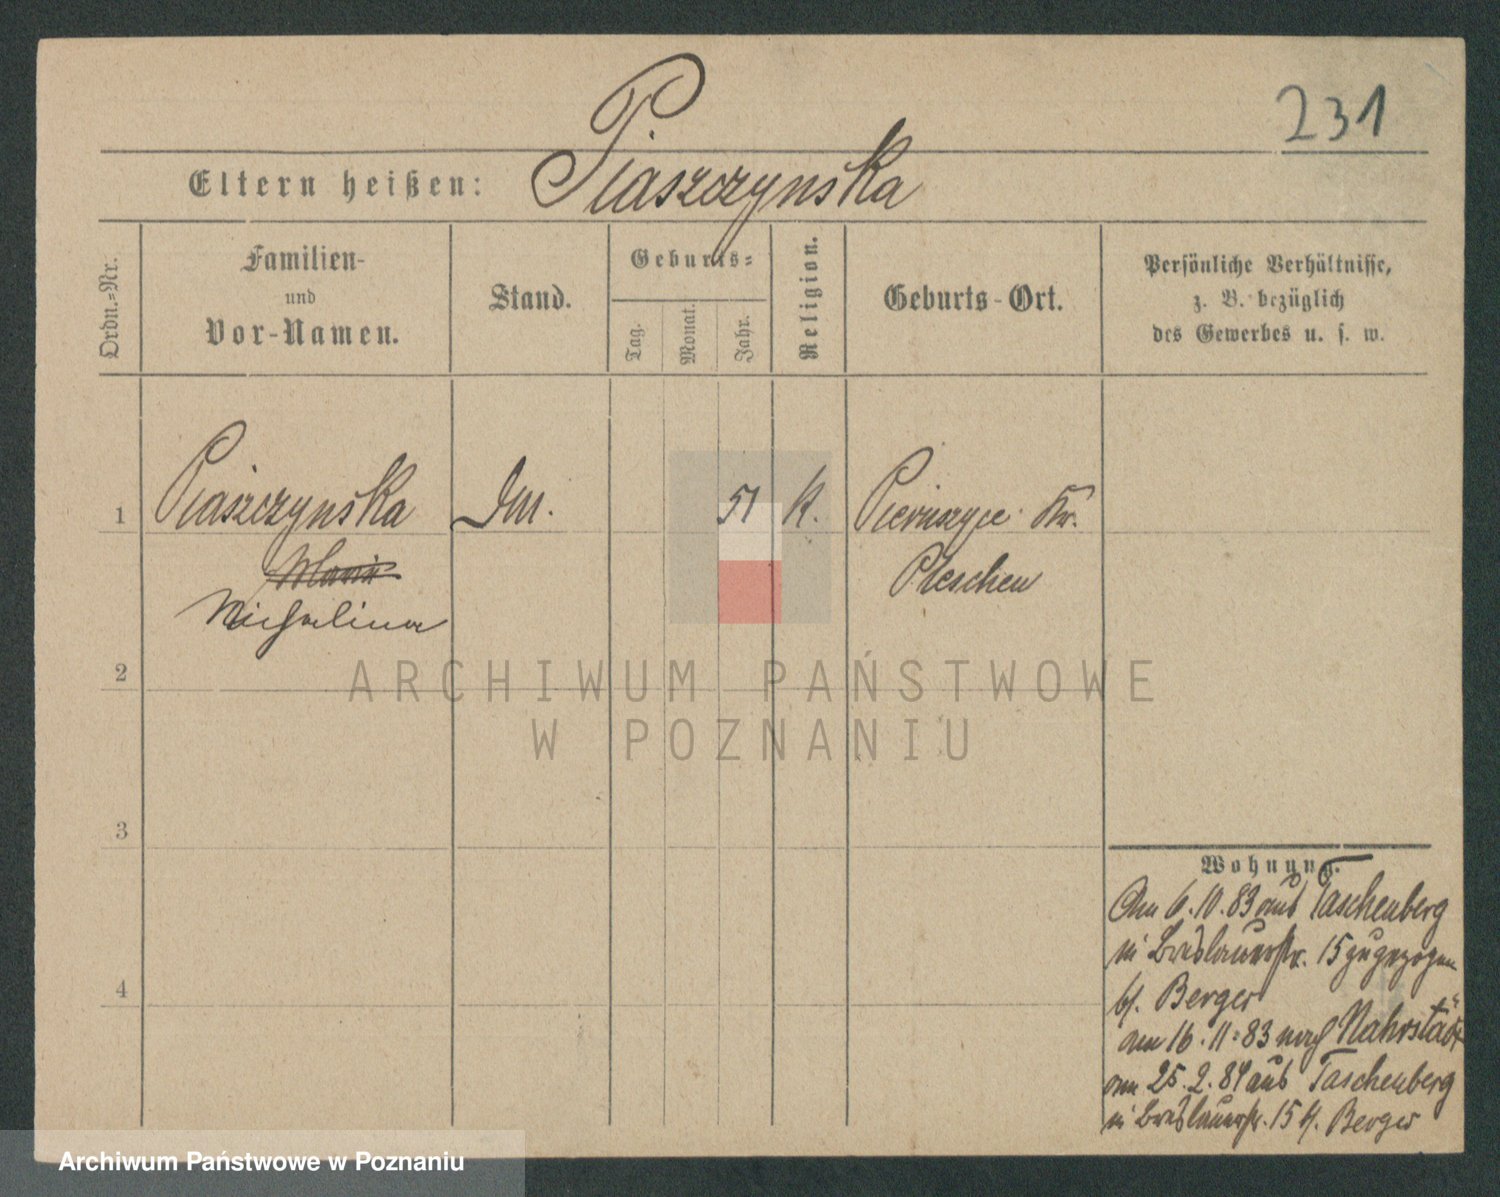 231
Eltern heißen: Piaszczynska
Ordn.=Nr.
Familien-
und
Vor-Namen.
Stand.
Geburts=
Tag.
Monat.
Jahr.
Religion.
Geburts-Ort.
Persönliche Verhältnisse,
z. B. bezüglich
des Gewerbes u. s. w.
1 Piaszczynska 51 K. Pieruszyce Kr.
Maria Pleschen
Michalina
2
3
4
ARCHIWUM PAŃSTWOWE
W POZNANIU
Wohnung.
Am 6.10.83 aus Taschenberg
in Breslauerstr. 15 zugezogen
b/. Berger
am 16.11.83 nach
am 25.2.84 aus Taschenberg
in Breslauerstr. 15 b/. Berger
Archiwum Państwowe w Poznaniu